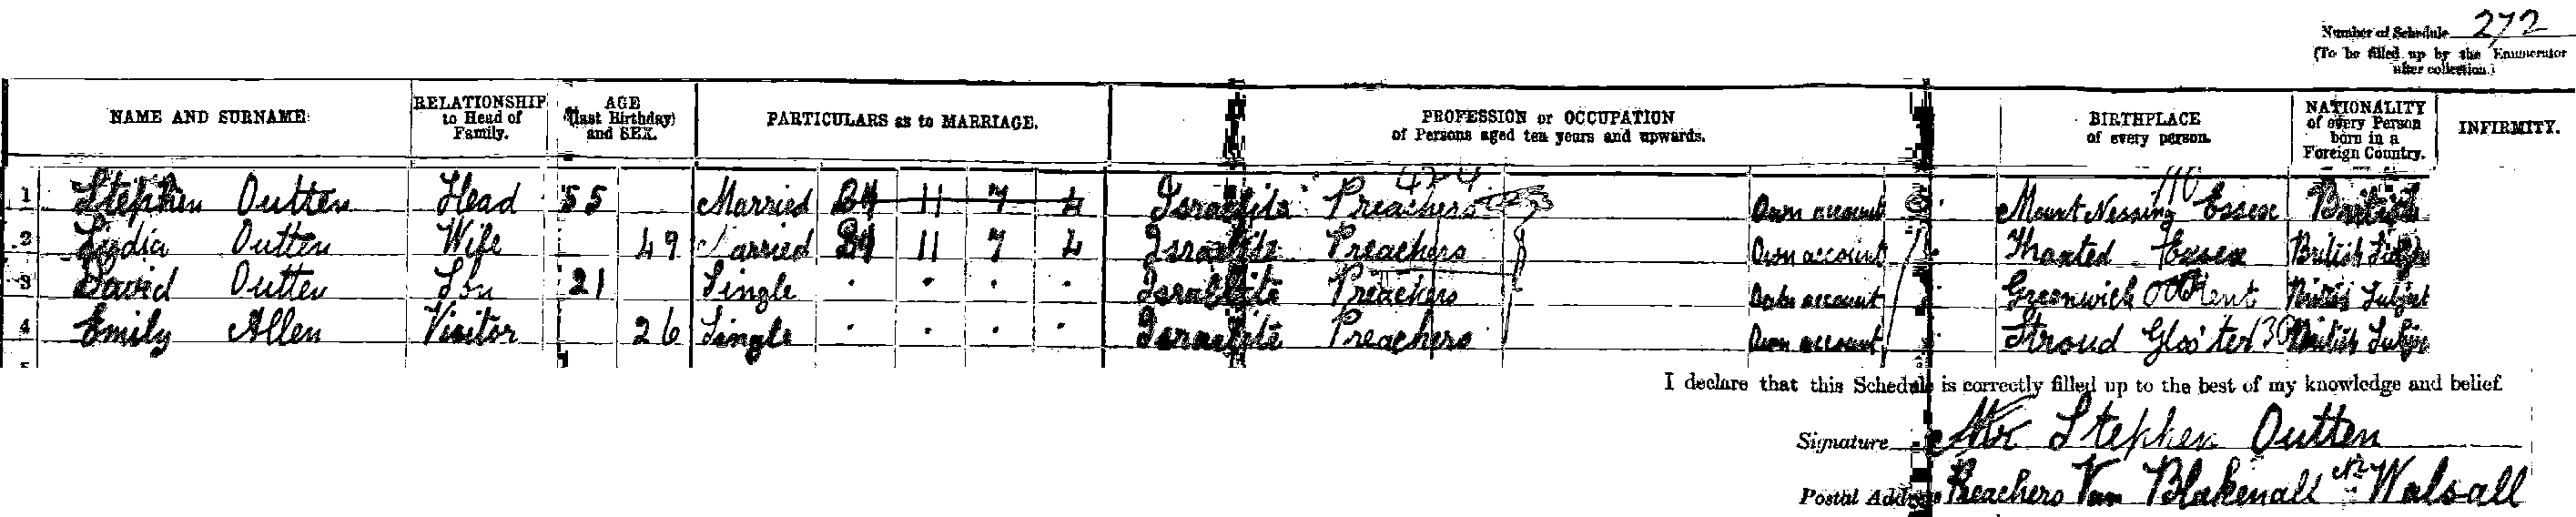 Number of Schedule 272
(To be filled up by the Enumerator
after collection.)
NAME AND SURNAME RELATIONSHIP to Head of Family. AGE (last Birthday) and SEX. PARTICULARS as to MARRIAGE. PROFESSION or OCCUPATION of Persons aged ten years and upwards. BIRTHPLACE of every person. NATIONALITY of every Person born in a Foreign Country. INFIRMITY.
1 Stephen Outten Head 55 Married 11 7 4 Israelite Preachers Own account Mount Nessing Essex British
2 Lydia Outten Wife 49 Married 11 7 4 Israelite Preachers Own account Thaxted Essex British Subject
3 David Outten Son 21 Single Israelite Preachers Own account Greenwich Kent British Subject
4 Emily Allen Visitor 26 Single Israelite Preachers Own account Stroud Glos'ter British Subject
I declare that this Schedule is correctly filled up to the best of my knowledge and belief.
Signature Mr Stephen Outten
Postal Address Preachers Van Blakenall Nr Walsall